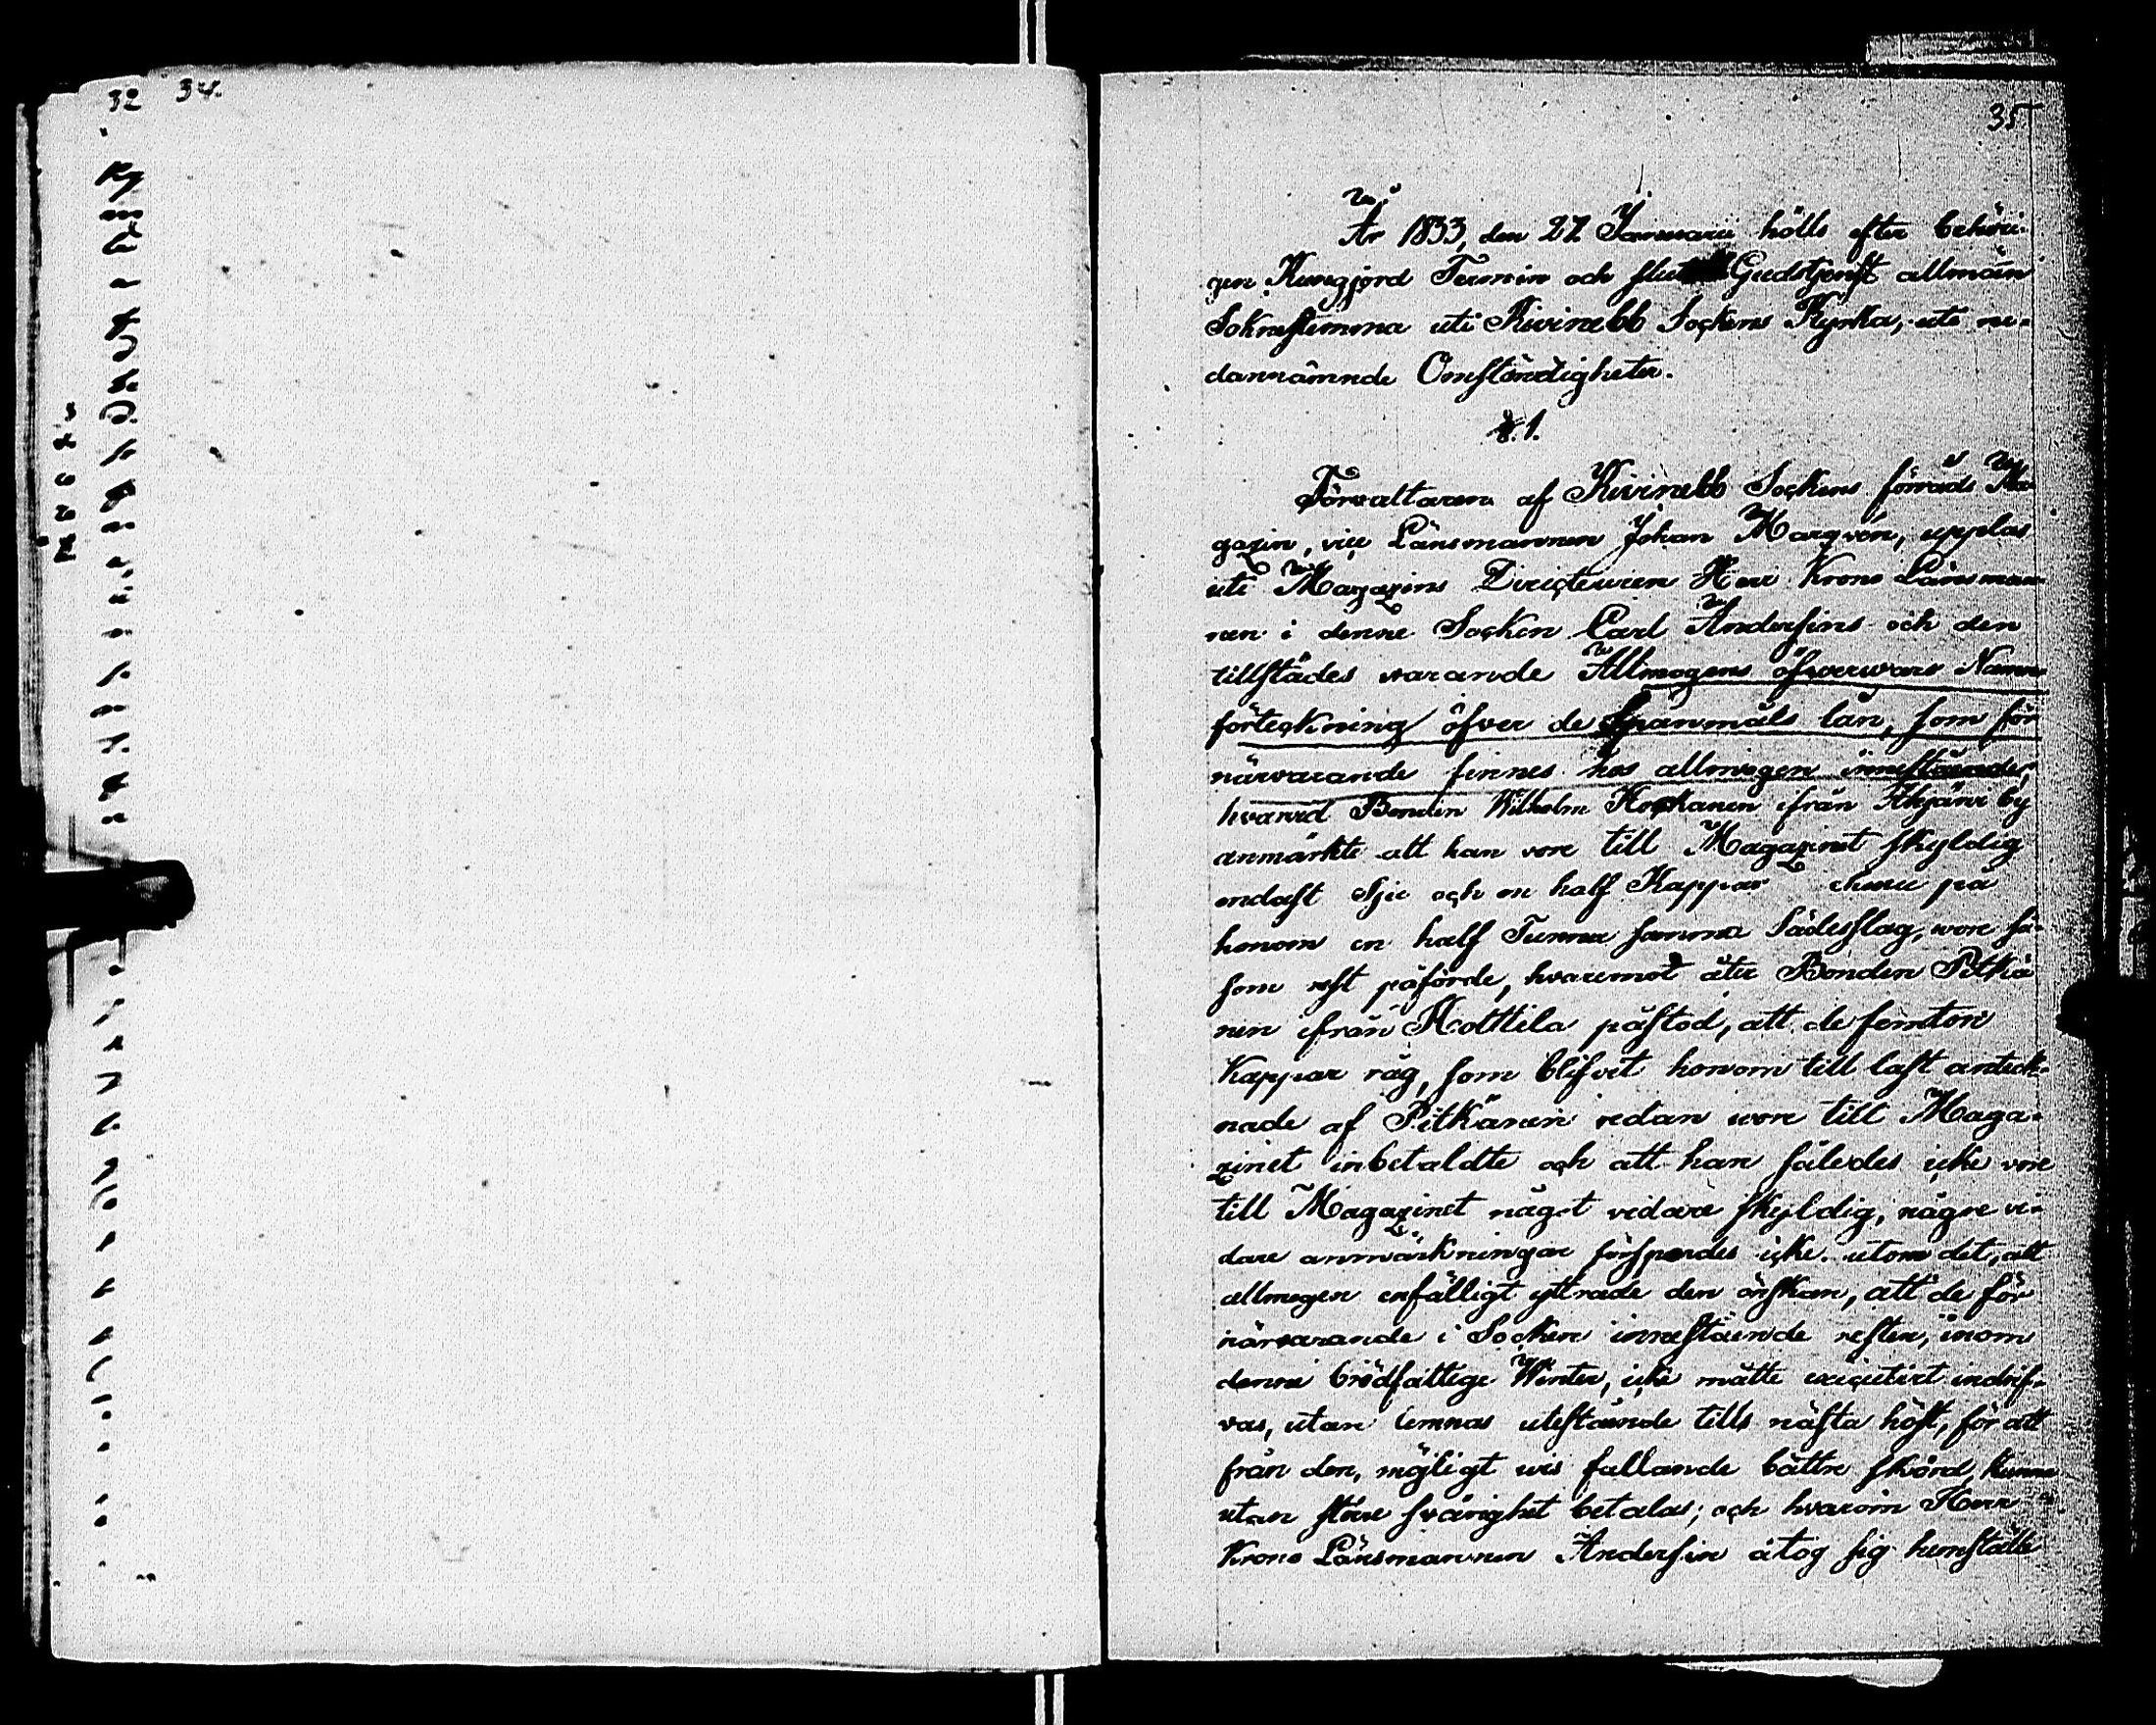 32 34.
35
År 1833, den 27 Januarii hölls efter behöri-
gen Kungjord Termin och slutad Gudstjenst allmän
Soknestemma uti Kivinebb Sockens Kyrka, uti ne-
dannämnde Omständigheter.
§.1.
Förvaltaren af Kivinebb Sockens förråds Ma-
gazin, vice Länsmannen Johan Margvén, upplas
uti Magazins Directeuren Herr Krono Länsman-
nen i denne Socken Carl Andersins och den
tillstädes varande Allmogens öfvervaro Namn-
förteckning öfver de Spanmåls lån, som för
närvarande finnes hos allmogen innestående,
hvarvid Bonden Wilhelm Koskanen ifrån Akjärvi by
anmärkte att han vore till Magazinet skyldig
endast sju och en half Kappar ehuru på
honom en half Tunna samma Sädesslag, wore så-
som rest påförde, hvaremot åter Bonden Pitkä-
nen ifrån Kottila påstod, att de femton
Kappar råg, som blifvit honom till last anteck-
nade af Pitkänen redan wore till Maga-
zinet inbetaldte och att han således icke vore
till Magazinet något vidare skyldig, någre vi-
dare anmärkningar förspordes icke utom det, att
allmogen enfälligt yttrade den önskan, att de för
närvarande i Socken innestående rester, inom
denne brödfattige Winter, icke måtte executivt indrif-
vas, utan lemnas utestående tills nästa höst, för att
från den, möjligt vis fallande bättre skörd, kunna
utan större svårighet betalas; och hvarom Herr
Krono Länsmannen Andersin åtog sig hemställa